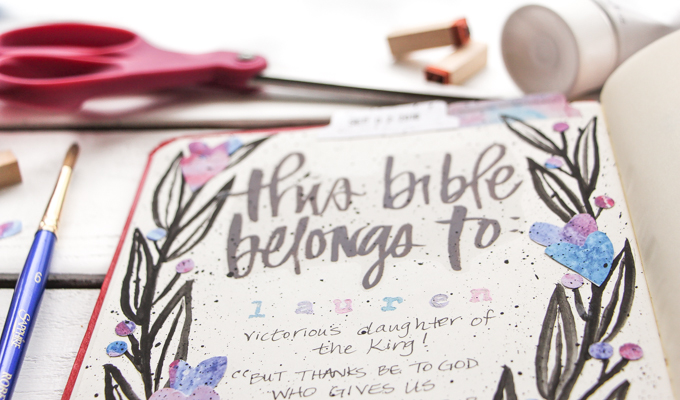 this bible
belongs to:
lauren
victorious daughter of
the King!
"BUT THANKS BE TO GOD
WHO GIVES US